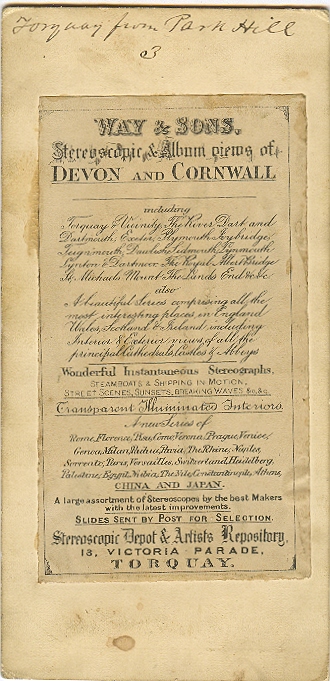 Torquay from Park Hill
3
WAY & SONS,
Stereoscopic & Album views of
DEVON AND CORNWALL
including
Torquay & Vicinity, The River Dart and
Dartmouth, Exeter, Plymouth, Ivybridge,
Teignmouth, Dawlish, Sidmouth, Lynmouth,
Lynton & Dartmoor. The Royal Albert Bridge
St. Michaels Mount. The Lands End &c &c.
also
A beautiful Series comprising all the
most interesting places in England
Wales, Scotland & Ireland, including
Interior & Exterior views, of all the
principal Cathedrals, Castles & Abbeys
Wonderful Instantaneous Stereographs.
STEAMBOATS & SHIPPING IN MOTION,
STREET SCENES, SUNSETS, BREAKING WAVES &c, &c.
Transparent Illuminated Interiors.
A new Series of
Rome, Florence, Pisa, Como, Verona, Prague, Venice,
Genoa, Milan, Pavia, The Rhine, Naples,
Sorrento, Paris, Versailles, Switzerland, Heidelberg,
Palestine, Egypt, Nubia, The Nile, Constantinople, Athens,
CHINA AND JAPAN.
A large assortment of Stereoscopes by the best Makers
with the latest improvements.
SLIDES SENT BY POST FOR SELECTION.
Stereoscopic Depot & Artists Repository,
13, VICTORIA PARADE,
TORQUAY.